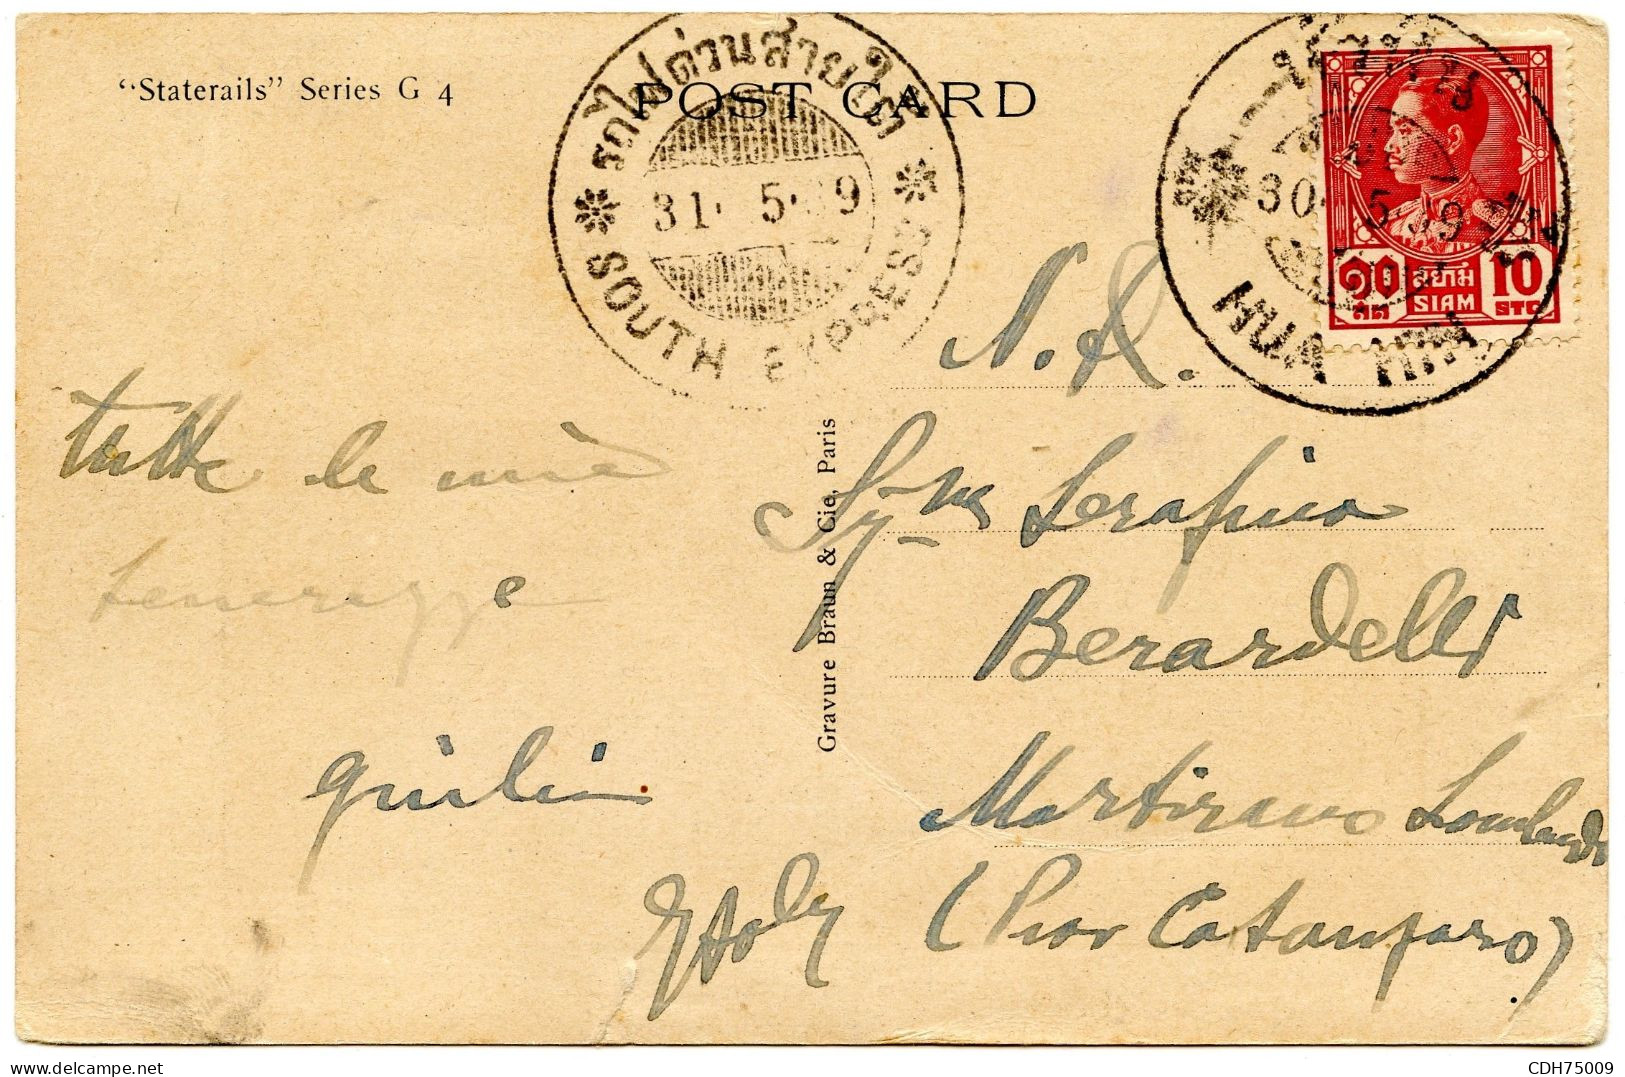 “Staterails” Series G 4
POST CARD
รถไฟด่วนสายใต้
31. 5. 39
SOUTH EXPRESS
30. 5. 39
HUA HIN
๑๐ สยาม 10
SIAM STG
Gravure Braun & Cie, Paris
N. R.
tutte le mie
tenerezze
giulia
Serafina
Berardelli
Martirano Lombardo
(Prov Catanzaro)
Italy
CDH75009